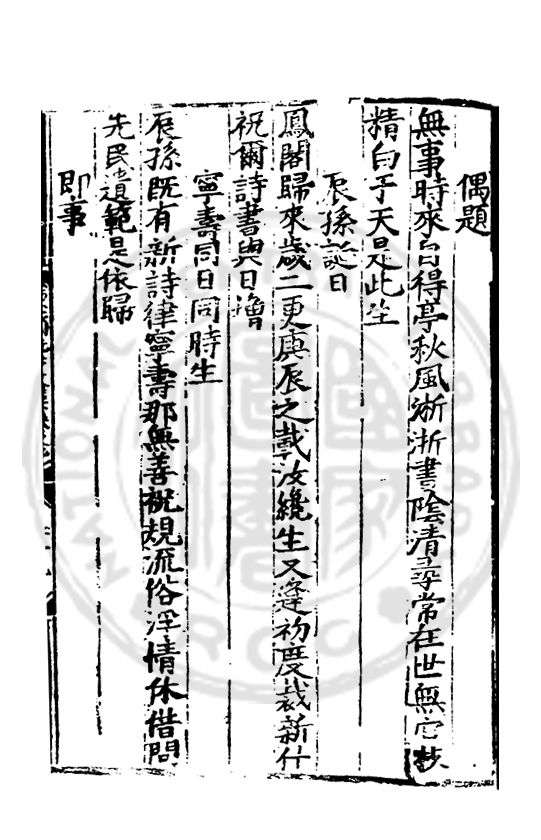 偶題
無事時來自得亭秋風淅淅書陰清尋常在世無它
精白于天是此生
辰孫誕日
鳳閣歸來歲二更庚辰之載汝纔生又逢初度裁新什
祝爾詩書與日增
寧壽同日同時生
辰孫既有新詩律寧壽那無善祝規流俗浮情休借問
先民遺範是依歸
即事